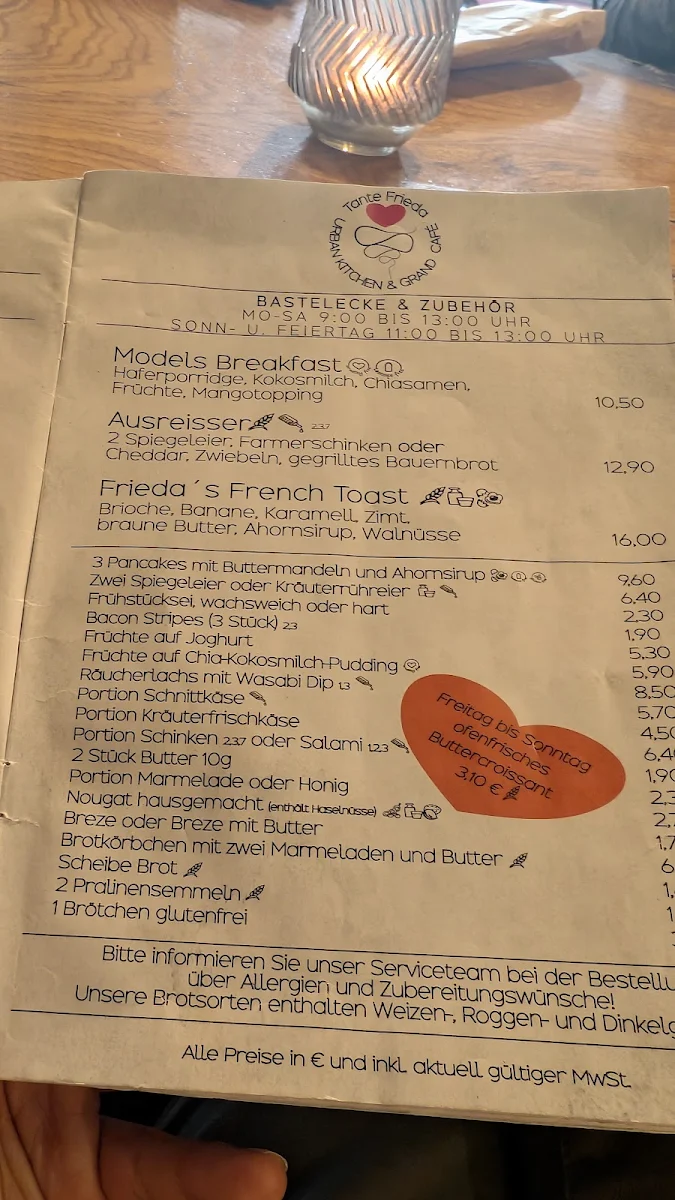 Tante Frieda
URBAN KITCHEN & GRAND CAFÉ
BASTELECKE & ZUBEHÖR
MO-SA 9:00 BIS 13:00 UHR
SONN- U. FEIERTAG 11:00 BIS 13:00 UHR
Models Breakfast
Haferporridge, Kokosmilch, Chiasamen,
Früchte, Mangotopping 10,50
Ausreisser 2,3,7
2 Spiegeleier, Farmerschinken oder
Cheddar, Zwiebeln, gegrilltes Bauernbrot 12,90
Frieda´s French Toast
Brioche, Banane, Karamell, Zimt,
braune Butter, Ahornsirup, Walnüsse 16,00
3 Pancakes mit Buttermandeln und Ahornsirup 9,60
Zwei Spiegeleier oder Kräuterrühreier 6,40
Frühstücksei, wachsweich oder hart 2,30
Bacon Stripes (3 Stück) 2,3 1,90
Früchte auf Joghurt 5,30
Früchte auf Chia-Kokosmilch-Pudding 5,90
Räucherlachs mit Wasabi Dip 1,3 8,50
Portion Schnittkäse 5,70
Portion Kräuterfrischkäse 4,50
Portion Schinken 2,3,7 oder Salami 1,2,3 6,4
2 Stück Butter 10g 1,90
Portion Marmelade oder Honig 2,3
Nougat hausgemacht (enthält Haselnüsse) 2,
Breze oder Breze mit Butter 1,7
Brotkörbchen mit zwei Marmeladen und Butter 6
Scheibe Brot 1,
2 Pralinensemmeln 1
1 Brötchen glutenfrei
Freitag bis Sonntag
ofenfrisches
Buttercroissant
3,10 €
Bitte informieren Sie unser Serviceteam bei der Bestellu
über Allergien und Zubereitungswünsche!
Unsere Brotsorten enthalten Weizen-, Roggen- und Dinkelg
Alle Preise in € und inkl. aktuell gültiger MwSt.